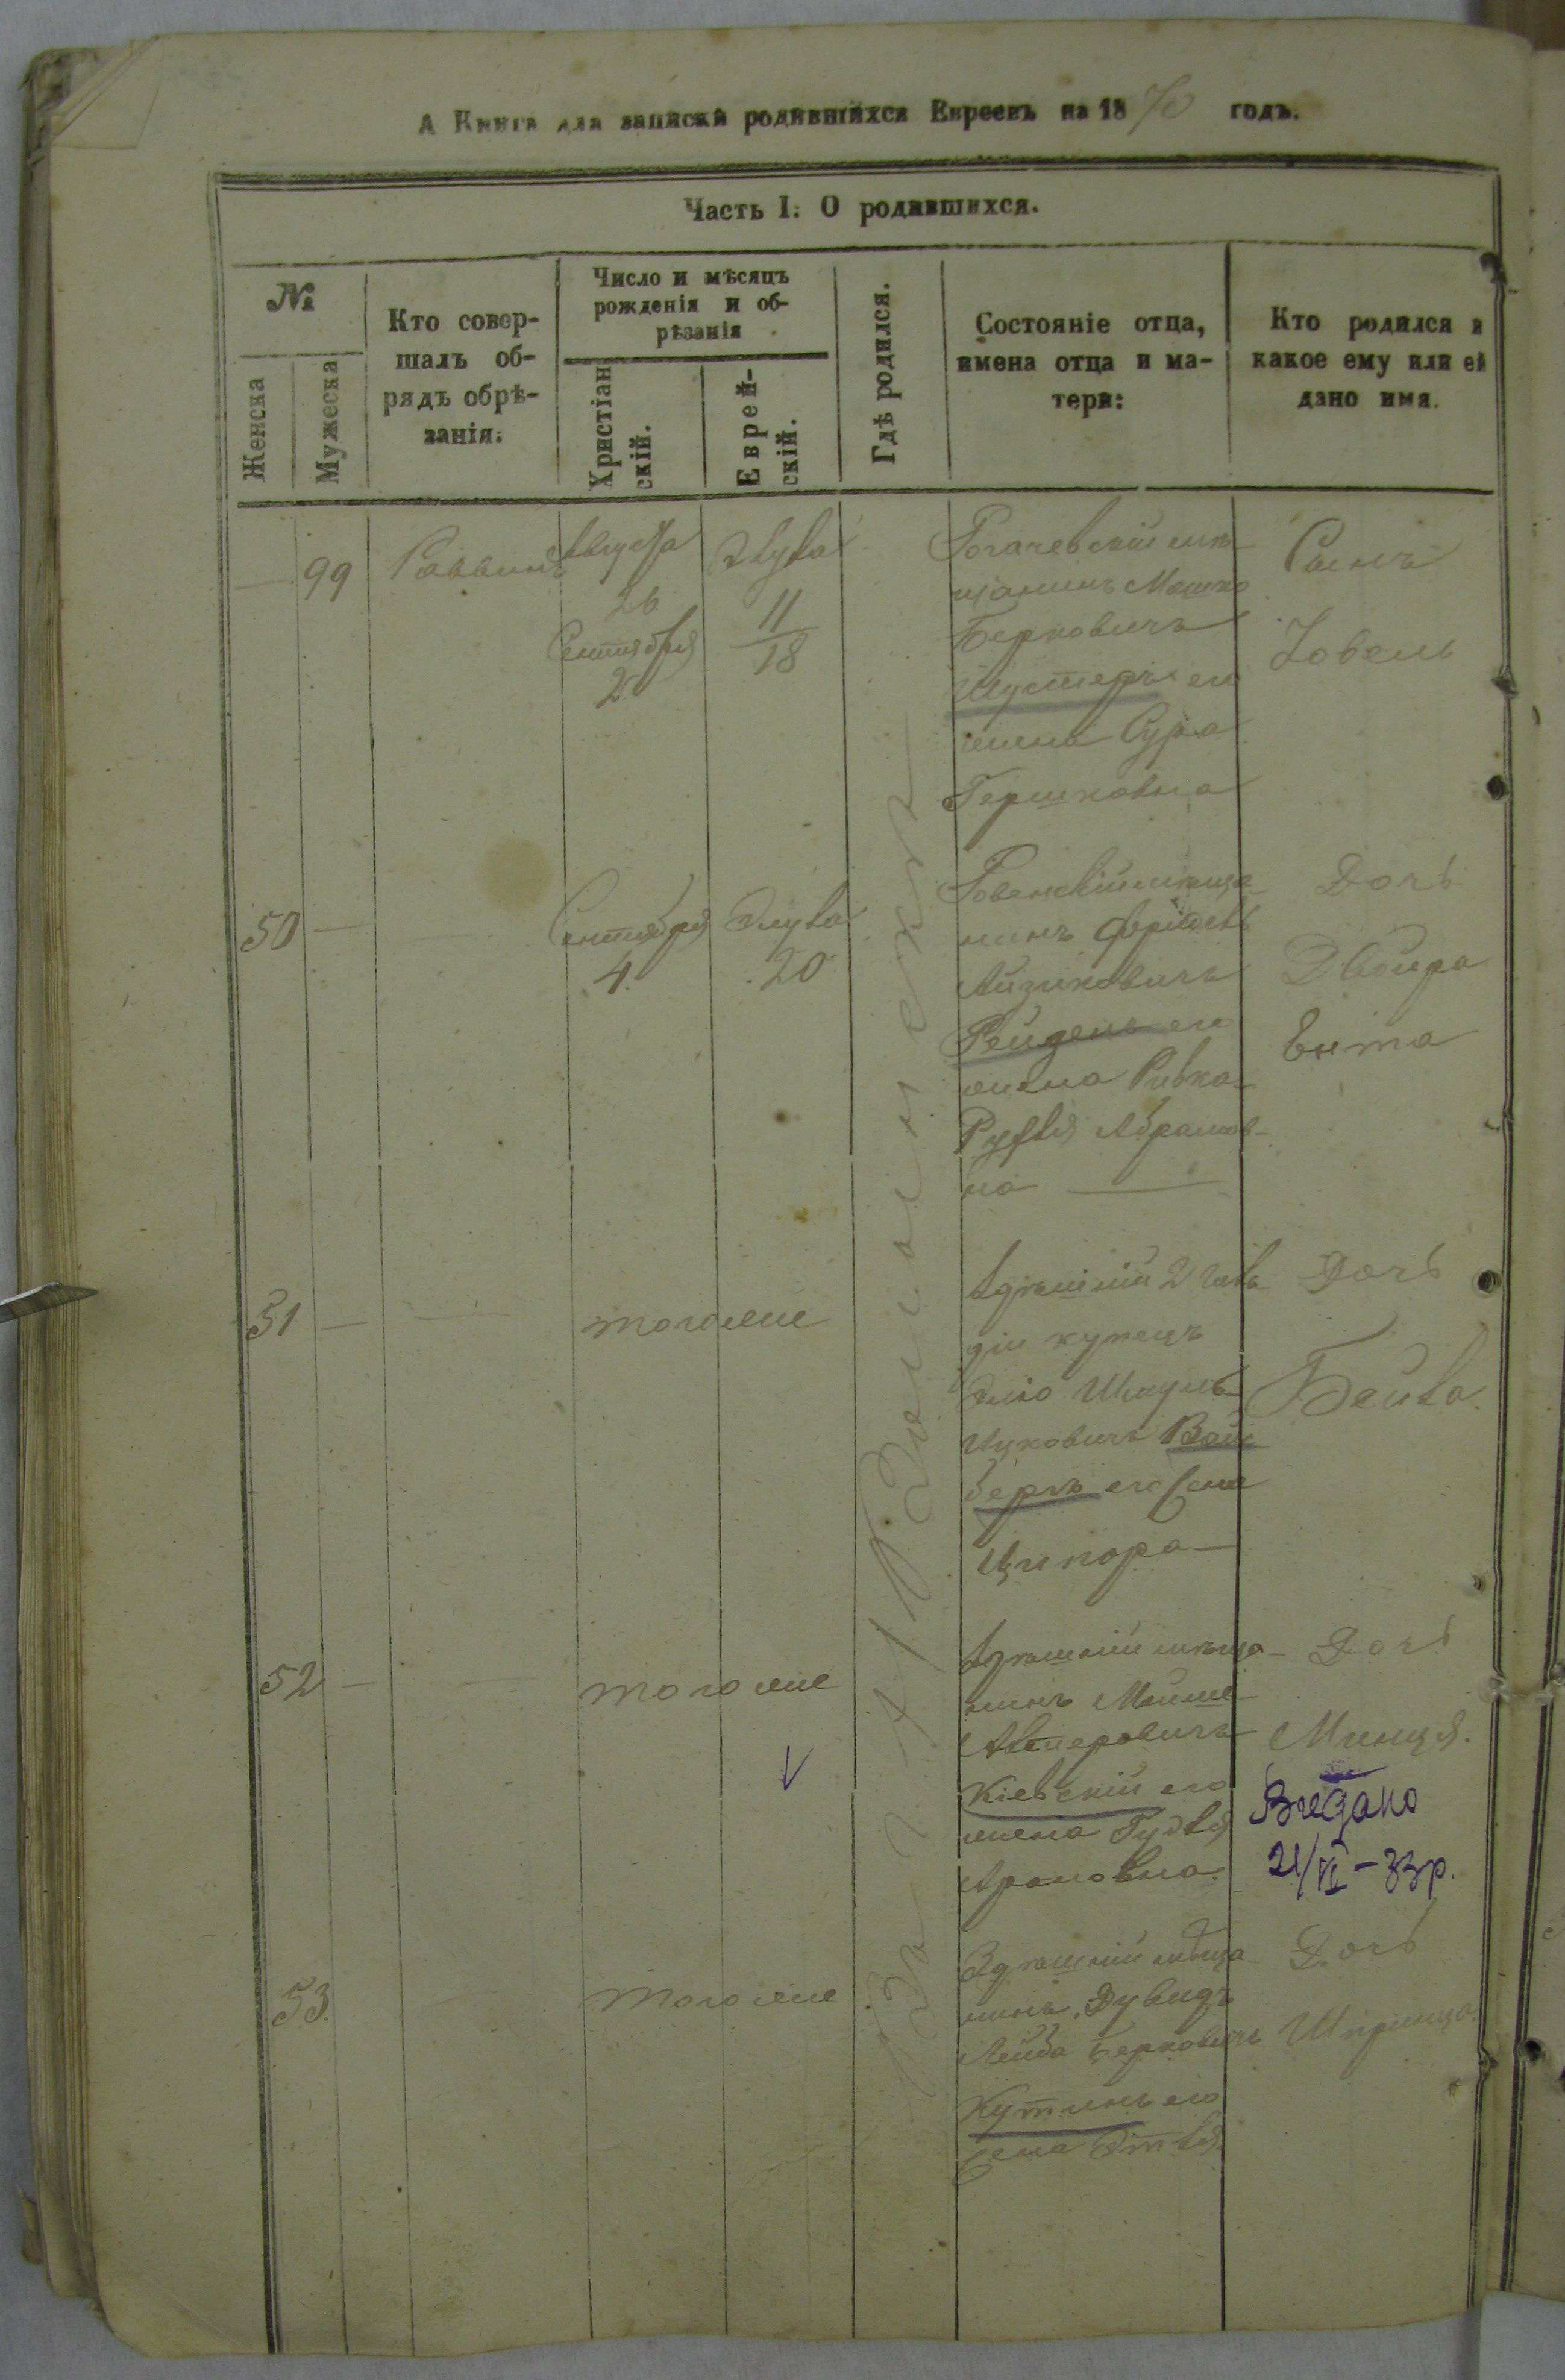 А Книга для записки родившихся Евреевъ на 1870 годъ.
Часть I. О родившихся.
№
Женска
Мужеска
Кто совер-
шалъ об-
рядъ обрѣ-
занія.
Число и мѣсяцъ
рожденія и об-
рѣзанія
Христіан
скій.
Еврей-
скій.
Гдѣ родился.
Состояніе отца,
имена отца и ма-
тери:
Кто родился и
какое ему или ей
дано имя.
99
Раввинъ
Августа
26
Сентября
2
Элула
11
18
Рогачевскій мѣ-
щанинъ Мошко
Берковичъ
Шустеръ его
жена Сура
Гершковна
Сынъ
Іовель
50
Сентября
4.
Элула
20
Ровенскій мѣща-
нинъ
Айзиковичъ
его
жена Ривка-
Абрамов-
на
Дочь
Двойра
Ента
51
тогоже
2 гиль-
діи купецъ
Элio Шмуль-
Ицковичъ Вай
бергъ его жена
Ципора
Дочь
Бейла.
52
тогоже
Здѣшній мѣща-
нинъ
Кіевскій его
жена
Ароновна.
Дочь
Минця.
Видано
21/VI - 33 р.
53.
тогоже
Здѣшній мѣща-
нинъ Дувидъ
Лейба Берковичъ
его
жена Этля
Дочь
Шпринца.